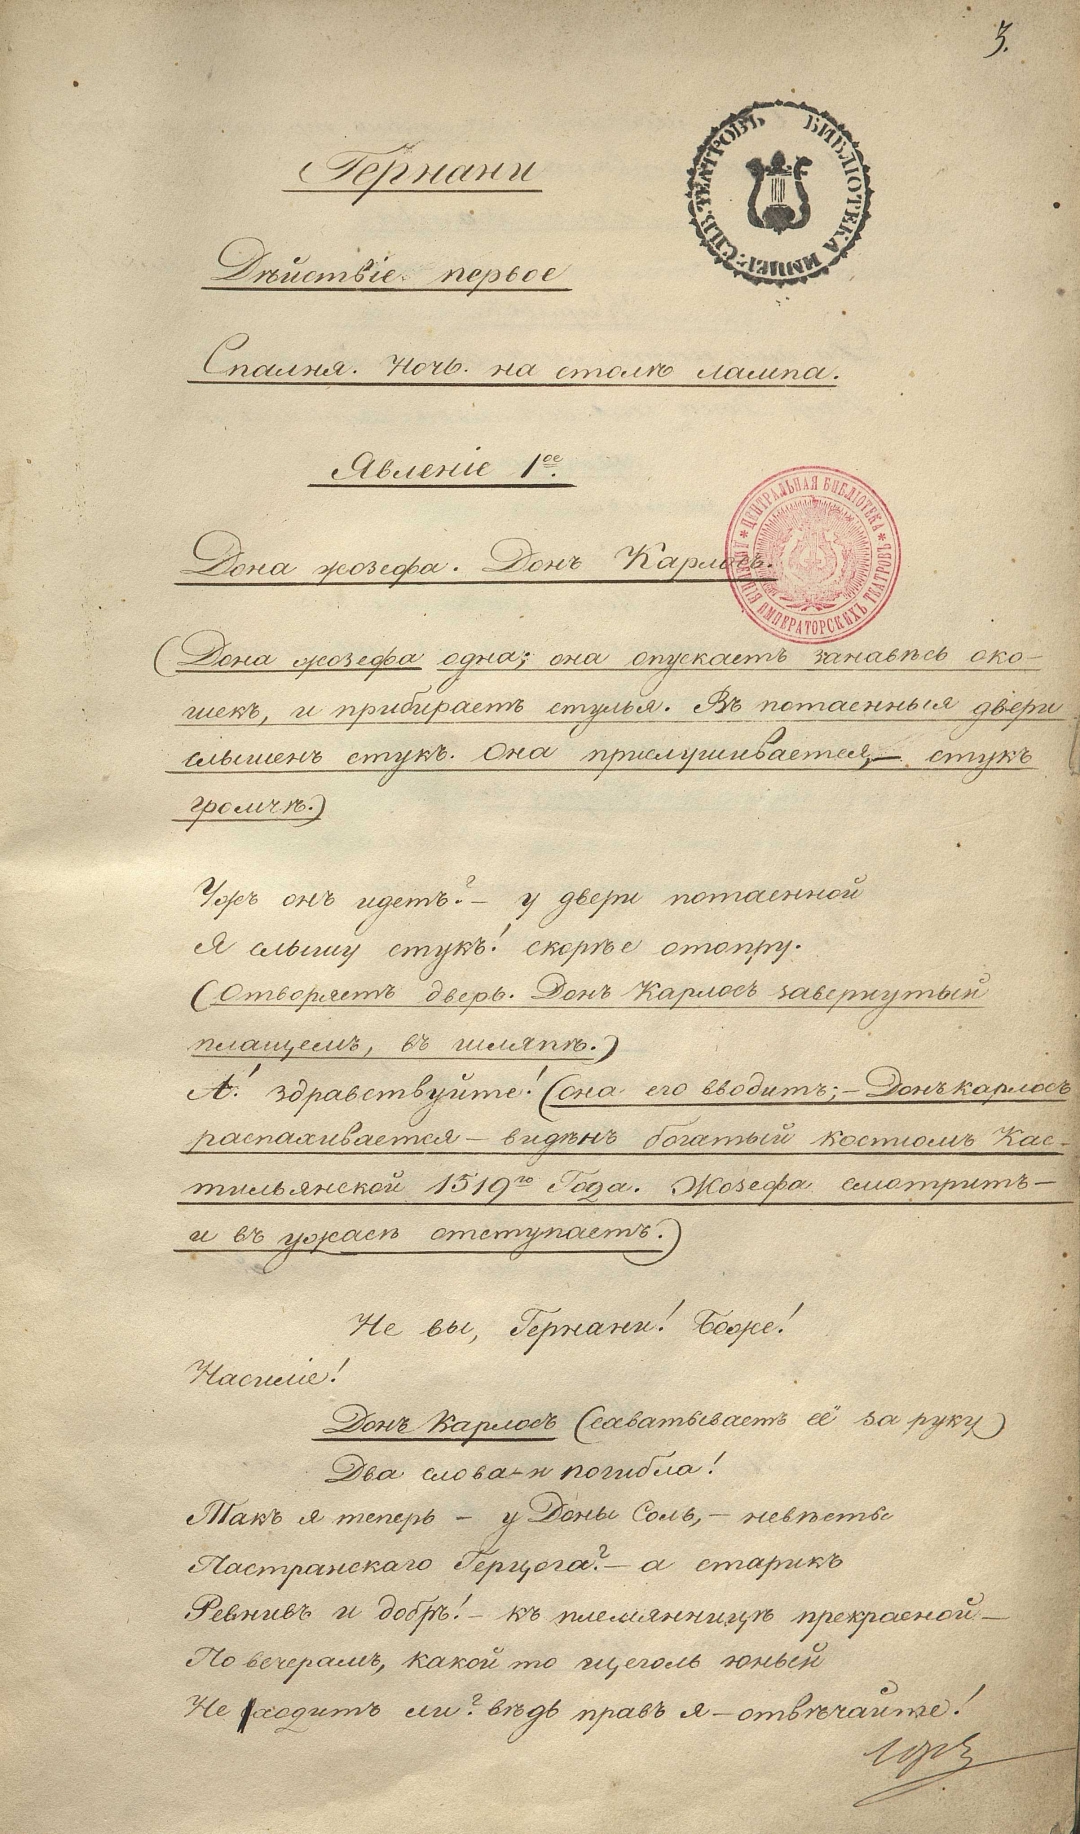 3.
БИБЛІОТЕКА ИМПЕР: СПБ. ТЕАТРОВЪ
Гернани
Дѣйствіе первое
Спалня. Ночь. на столѣ лампа.
Явленіе 1ое.
ЦЕНТРАЛЬНАЯ БИБЛІОТЕКА ИМПЕРАТОРСКИХЪ ТЕАТРОВЪ
Дона жозефа. Донъ Карлосъ.
(Дона жозефа одна; она опускаетъ занавѣсъ око-
шекъ, и прибираетъ стулья. Въ потаенныя двери
слышенъ стукъ. Она прислушивается, — стукъ
громчѣ.)
Ужъ онъ идетъ? — у двери потаенной
Я слышу стукъ! скорѣе отопру.
(Отворяетъ дверь. Донъ Карлосъ завернутый
плащемъ, въ шляпѣ.)
А! здравствуйте! (она его вводитъ; — Донъ карлосъ
распахивается — видѣнъ богатый костюмъ Кас-
тильянской 1519го Года. Жозефа смотритъ —
и въ ужасѣ отступаетъ.)
Не вы, Гернани! Боже!
Насиліе!
Донъ Карлосъ (схватываетъ её за руку)
Два слова — и погибла!
Такъ я теперь — у Доны Соль, — невѣсты
Пастранскаго Герцога? — а старикъ
Ревнивъ и добръ! — къ племянницѣ прекрасной —
По вечерамъ, какой то щеголь юный
Не ходитъ ли? вѣдь правъ я — отвѣчайте!